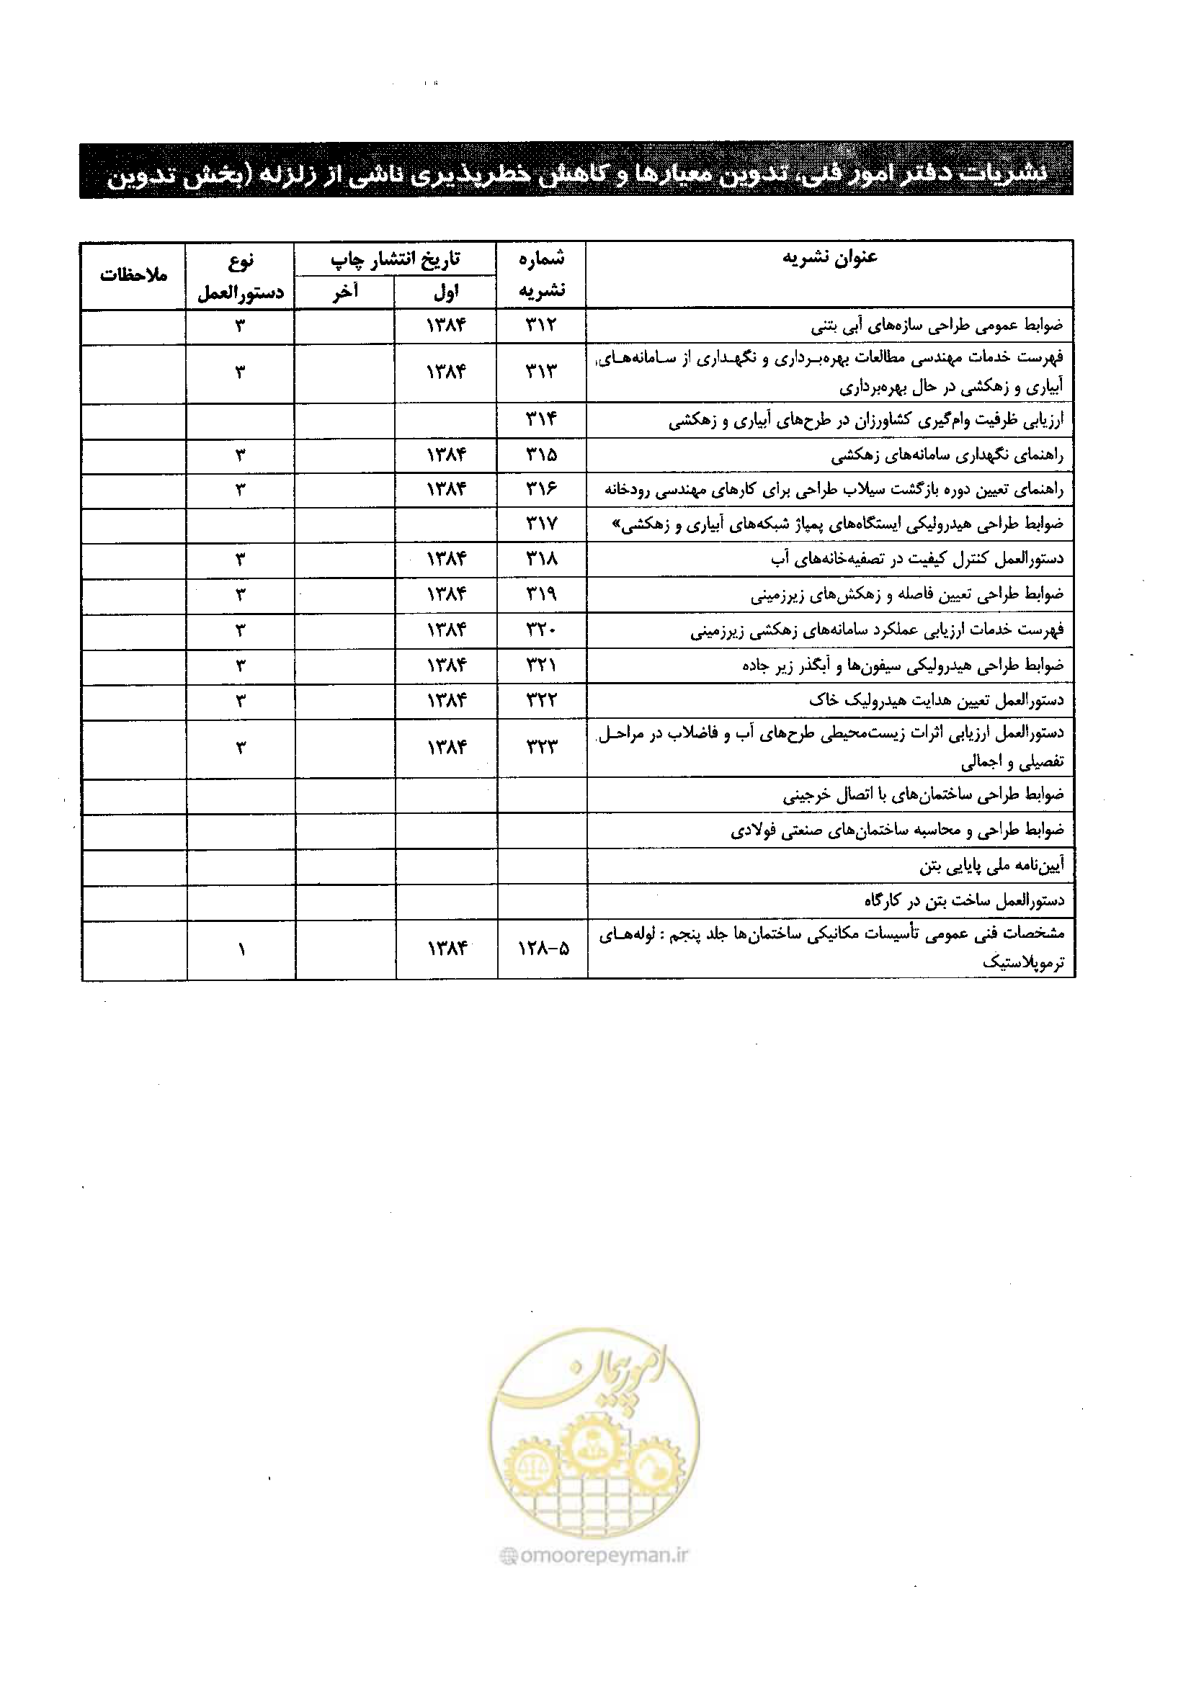 نشریات دفتر امور فنی، تدوین معیارها و کاهش خطرپذیری ناشی از زلزله (بخش تدوین
عنوان نشریه شماره نشریه تاریخ انتشار چاپ نوع دستورالعمل ملاحظات
اول آخر
ضوابط عمومی طراحی سازه‌های آبی بتنی ۳۱۲ ۱۳۸۴ ۳
فهرست خدمات مهندسی مطالعات بهره‌برداری و نگهداری از سامانه‌های
آبیاری و زهکشی در حال بهره‌برداری ۳۱۳ ۱۳۸۴ ۳
ارزیابی ظرفیت وام‌گیری کشاورزان در طرح‌های آبیاری و زهکشی ۳۱۴
راهنمای نگهداری سامانه‌های زهکشی ۳۱۵ ۱۳۸۴ ۳
راهنمای تعیین دوره بازگشت سیلاب طراحی برای کارهای مهندسی رودخانه ۳۱۶ ۱۳۸۴ ۳
ضوابط طراحی هیدرولیکی ایستگاه‌های پمپاژ شبکه‌های آبیاری و زهکشی» ۳۱۷
دستورالعمل کنترل کیفیت در تصفیه‌خانه‌های آب ۳۱۸ ۱۳۸۴ ۳
ضوابط طراحی تعیین فاصله و زهکش‌های زیرزمینی ۳۱۹ ۱۳۸۴ ۳
فهرست خدمات ارزیابی عملکرد سامانه‌های زهکشی زیرزمینی ۳۲۰ ۱۳۸۴ ۳
ضوابط طراحی هیدرولیکی سیفون‌ها و آبگذر زیر جاده ۳۲۱ ۱۳۸۴ ۳
دستورالعمل تعیین هدایت هیدرولیک خاک ۳۲۲ ۱۳۸۴ ۳
دستورالعمل ارزیابی اثرات زیست‌محیطی طرح‌های آب و فاضلاب در مراحل
تفصیلی و اجمالی ۳۲۳ ۱۳۸۴ ۳
ضوابط طراحی ساختمان‌های با اتصال خرجینی
ضوابط طراحی و محاسبه ساختمان‌های صنعتی فولادی
آیین‌نامه ملی پایایی بتن
دستورالعمل ساخت بتن در کارگاه
مشخصات فنی عمومی تأسیسات مکانیکی ساختمان‌ها جلد پنجم : لوله‌های
ترموپلاستیک ۱۲۸-۵ ۱۳۸۴ ۱
امور پیمان
@omoorepeyman.ir